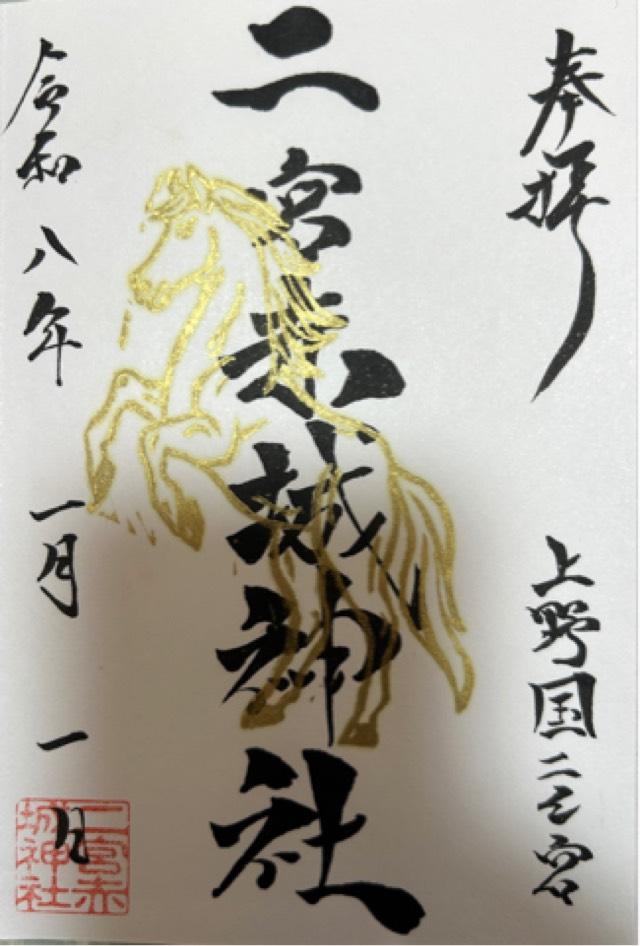 奉拝
上野国二之宮
二宮赤城神社
令和八年 一月 一日
二宮赤
城神社